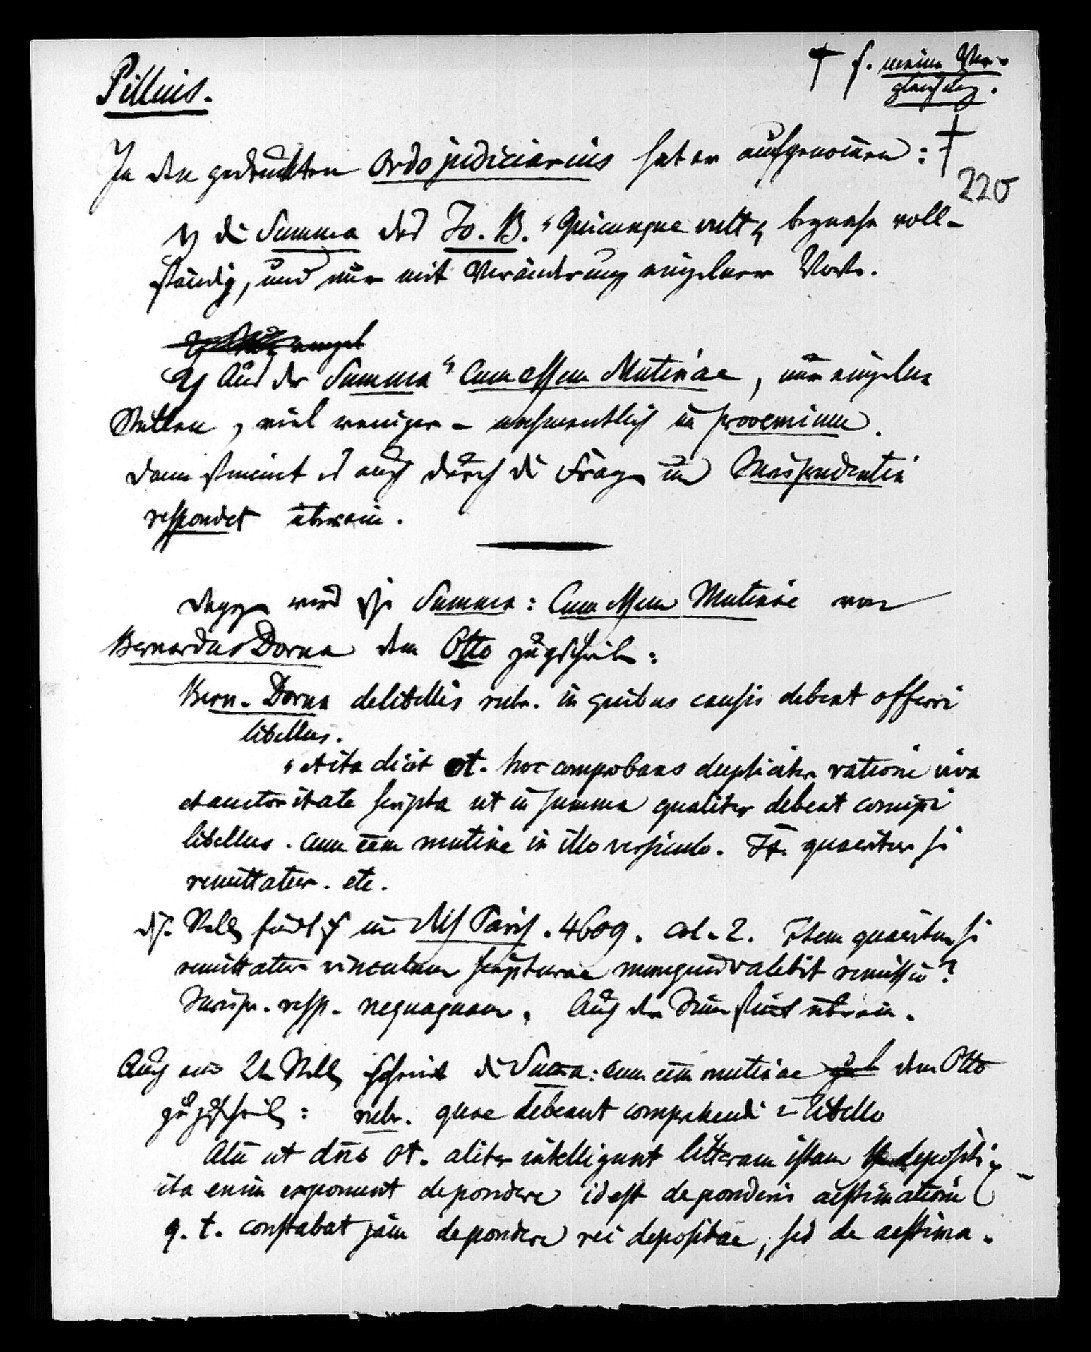 Pillius.
† s. meine Ver-
gleichung.
†
220
In den gedruckten Ordo judiciarius hat er aufgenommen:
1) die Summa des Jo. B. "Quicunque vult" beynahe voll-
ständig, und nur mit Veränderung einzelner Worte.
2) Aus der Summa "Cum essem Mutinae, nur einzelne
Stellen, viel weniger - nahmentlich in prooemium.
Dann stimmt es auch durch die Frage und Jurisprudentia
respondet überein.
Dagegen wird diese Summa: Cum essem Mutinae von
Bernardus Dorna dem Otto zugeschrieben:
Bern. Dorna de libellis rubr. in quibus causis debeat offerri
libellus.
"et ita dicit ot. hoc comprobans dupliciter ratione viva
et auctoritate scripta ut in summa qualiter debeat concipi
libellus. cum eem mutine in illo versiculo. It. quaeritur si
remittatur. etc.
Diese Stelle findet sich in Ms Paris. 4609. col. 2. Item quaeritur si
remittatur vinculum scripturae nunquid valebit remissio?
Jurispr. resp. nequaquam. Auch der Sinn stimmt überein.
Auch eine 2te Stelle scheint die Summa: cum eem mutinae dem Otto
zuzuschreiben: rubr. quae debeant comprehendi i libello
Alii ut dns ot. aliter intelligunt litteram istam depositi
ita enim exponunt de pondere id est de ponderis aestimatione
q. t. constabat jam de pondere rei depositae, sed de aestima-